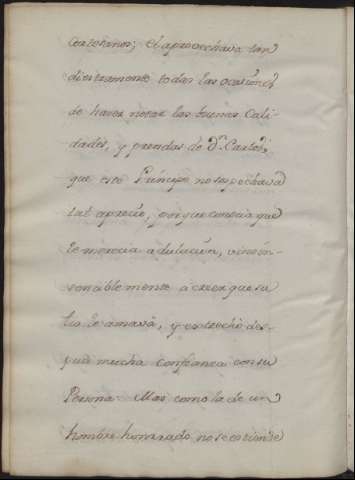 Cortesanos; él aprovechava tan
diestramente todas las ocasiones
de hacer notar las buenas Cali-
dades, y prendas de Dn. Carlos,
que este Principe no sospechava
tal aprecio, porque conocia que
le merecia adulacion, vino in-
sensiblemente á creer que su
tio le amava, y estrechó des-
pues mucha confianza con su
Persona. Mas como la de un
hombre honrrado no se estiende